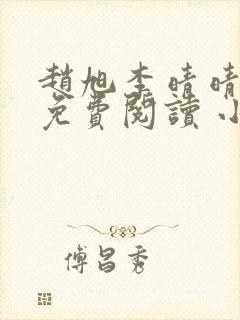 趙旭李晴晴
免費閱讀小
傅昌秀